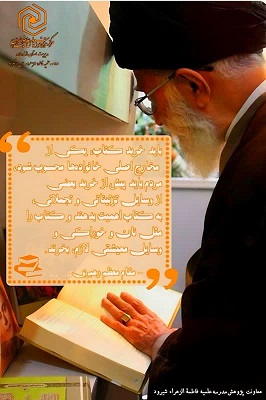 باید خرید کتاب، یکی از
مخارج اصلی خانواده‌ها محسوب شود.
مردم باید بیش از خرید بعضی
از وسایل تزییناتی و تجملاتی،
به کتاب اهمیت بدهند و کتاب را
مثل نان و خوراکی و
وسایل معیشتی لازم، بخرند.
مقام معظم رهبری
معاونت پژوهش مدرسه علمیه فاطمة الزهراء شیرود